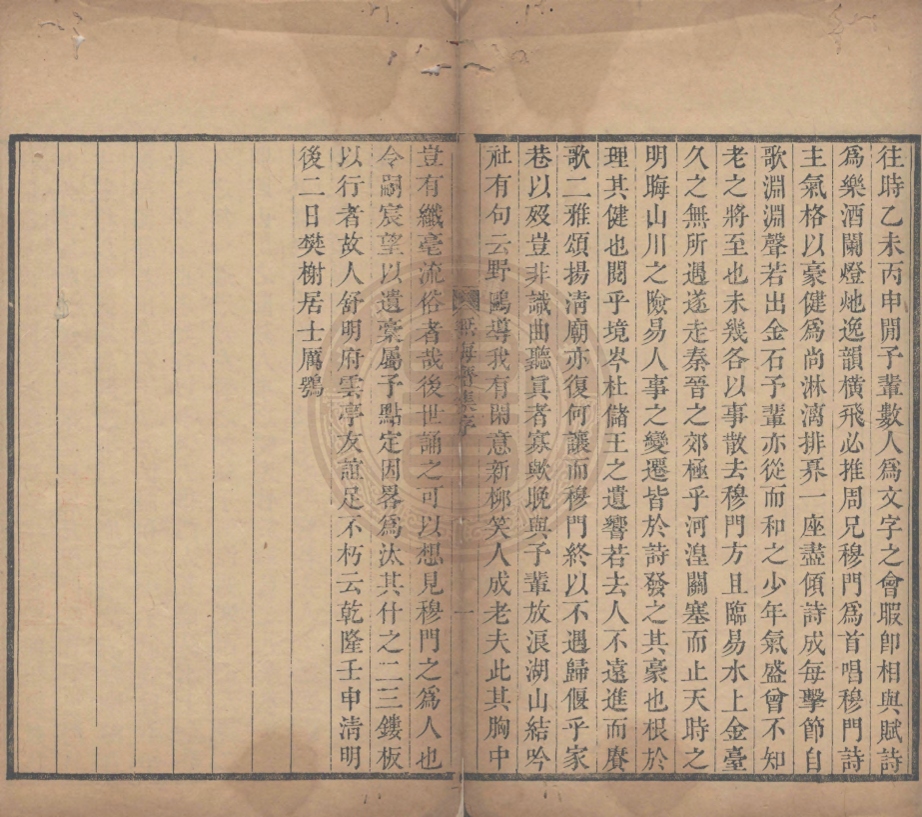 往時乙未丙申閒予輩數人爲文字之會暇卽相與賦詩
爲樂酒闌燈灺逸韻橫飛必推周兄穆門爲首唱穆門詩
主氣格以豪健爲尚淋漓排奡一座盡傾詩成每擊節自
歌淵淵聲若出金石予輩亦從而和之少年氣盛曾不知
老之將至也未幾各以事散去穆門方且臨易水上金臺
久之無所遇遂走秦晉之郊極乎河湟關塞而止天時之
明晦山川之險易人事之變遷皆於詩發之其豪也根於
理其健也閱乎境岑杜儲王之遺響若去人不遠進而賡
歌二雅頌揚淸廟亦復何讓而穆門終以不遇歸偃乎家
巷以歿豈非識曲聽眞者寡歟晚與予輩放浪湖山結吟
社有句云野鷗導我有閑意新柳笑人成老夫此其胸中
集序
一
豈有纖毫流俗者哉後世誦之可以想見穆門之爲人也
令嗣宸望以遺稾屬予點定因畧爲汰其什之二三鏤板
以行者故人舒明府雲亭友誼足不朽云乾隆壬申淸明
後二日樊榭居士厲鶚